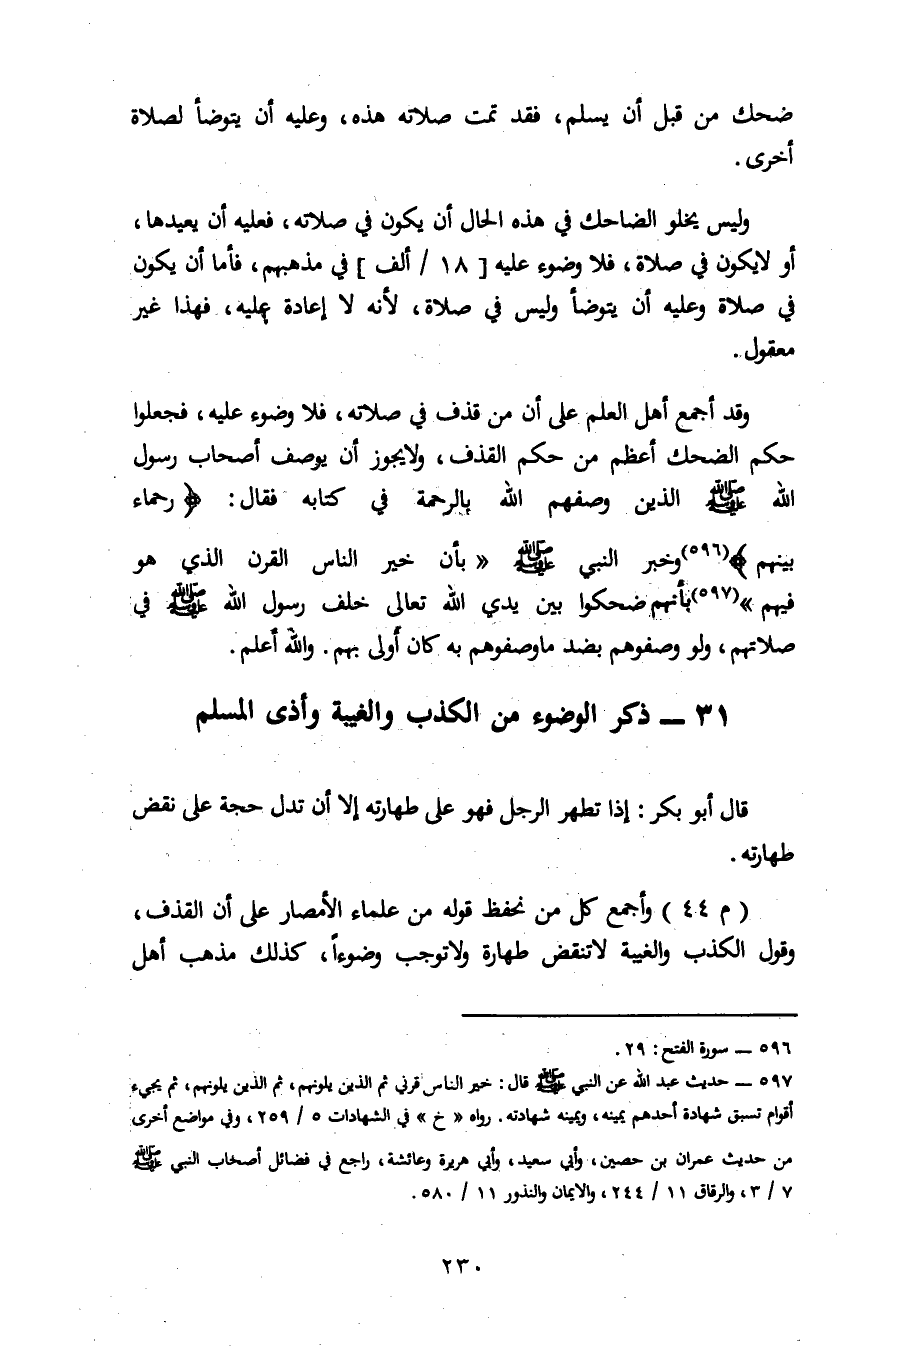 ضحك من قبل أن يسلم، فقد تمت صلاته هذه، وعليه أن يتوضأ لصلاة
أخرى.
وليس يخلو الضاحك في هذه الحال أن يكون في صلاته، فعليه أن يعيدها،
أو لايكون في صلاة، فلا وضوء عليه [ ١٨ / ألف ] في مذهبهم، فأما أن يكون
في صلاة وعليه أن يتوضأ وليس في صلاة، لأنه لا إعادة عليه، فهذا غير
معقول.
وقد أجمع أهل العلم على أن من قذف في صلاته، فلا وضوء عليه، فجعلوا
حكم الضحك أعظم من حكم القذف، ولايجوز أن يوصف أصحاب رسول
الله ﷺ الذين وصفهم الله بالرحمة في كتابه فقال: ﴿ رحماء
بينهم ﴾(٥٩٦) وخبر النبي ﷺ « بأن خير الناس القرن الذي هو
فيهم »(٥٩٧) بأنهم ضحكوا بين يدي الله تعالى خلف رسول الله ﷺ في
صلاتهم، ولو وصفوهم بضد ماوصفوهم به كان أولى بهم. والله أعلم.
٣١ ــ ذكر الوضوء من الكذب والغيبة وأذى المسلم
قال أبو بكر: إذا تطهر الرجل فهو على طهارته إلا أن تدل حجة على نقض
طهارته.
( م ٤٤ ) وأجمع كل من نحفظ قوله من علماء الأمصار على أن القذف،
وقول الكذب والغيبة لاتنقض طهارة ولاتوجب وضوءاً، كذلك مذهب أهل
٥٩٦ ــ سورة الفتح: ٢٩.
٥٩٧ ــ حديث عبد الله عن النبي ﷺ قال: خير الناس قرني ثم الذين يلونهم، ثم الذين يلونهم، ثم يجيء
أقوام تسبق شهادة أحدهم يمينه، ويمينه شهادته. رواه « خ » في الشهادات ٥ / ٢٥٩، وفي مواضع أخرى
من حديث عمران بن حصين، وأبي سعيد، وأبي هريرة وعائشة، راجع في فضائل أصحاب النبي ﷺ
٧ / ٣، والرقاق ١١ / ٢٤٤، والايمان والنذور ١١ / ٥٨٠.
٢٣٠